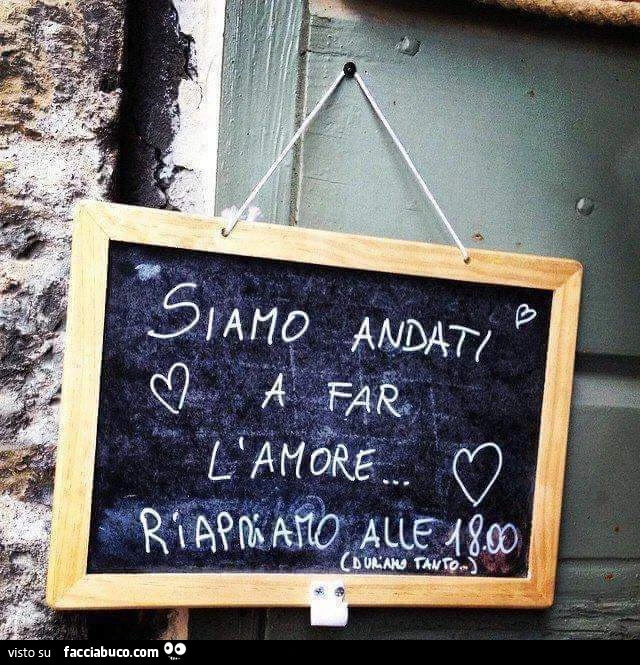 SIAMO ANDATI
A FAR
L'AMORE...
RIAPRIAMO ALLE 18.00
(DURIAMO TANTO...)
visto su facciabuco.com